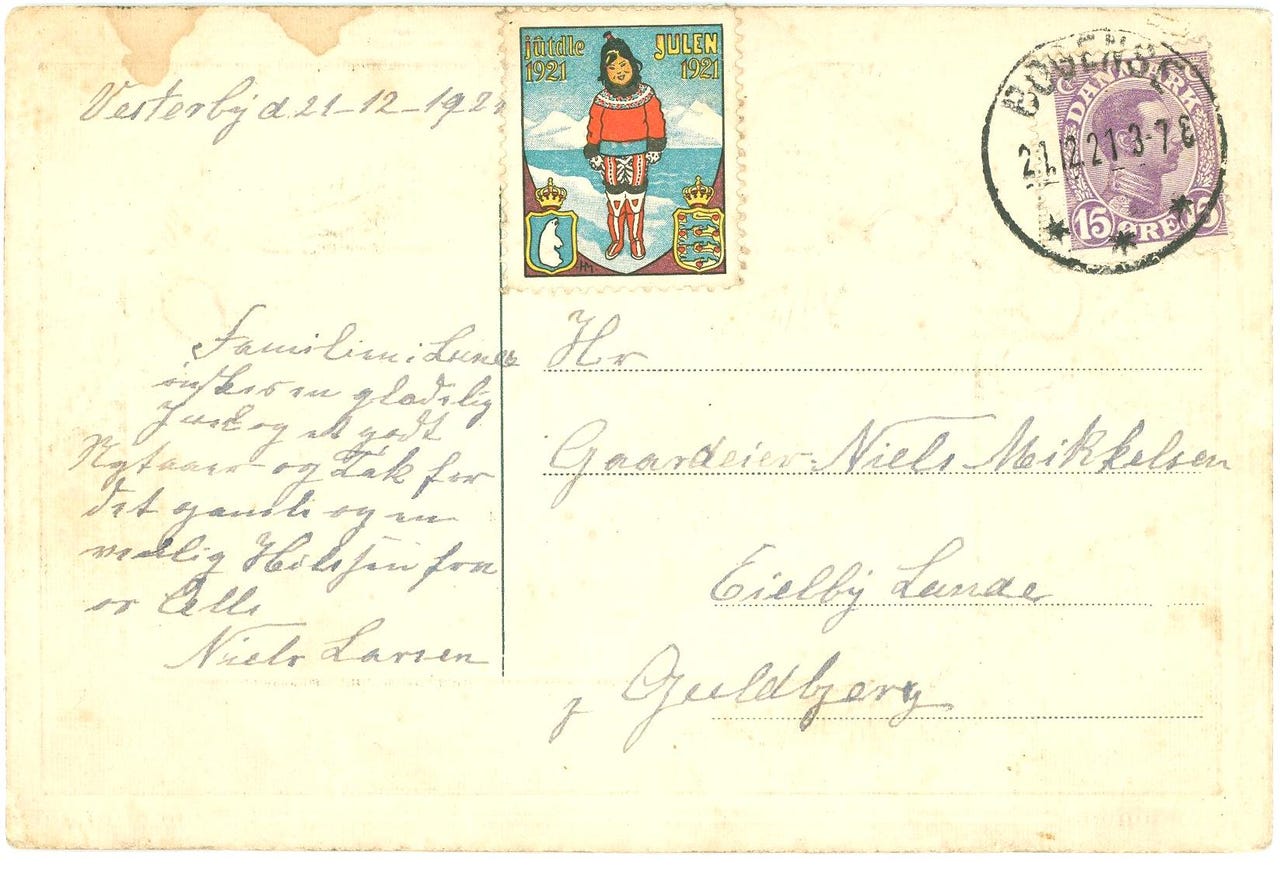 Vesterby d 21-12-192
jûtdle
1921
JULEN
1921
BOGENSE
21.12.21 3-7 E
DANMARK
15 ØRE 15
Familien: Lunde
ønskes en glædelig
Juel og et godt
Nytaaer og Tak for
det gamle og en
venlig Hilsen fra
os Alle
Niels Larsen
Hr
Gaardeier Niels Mikkelsen
Eielby Lunde
p Guldbjerg
HM